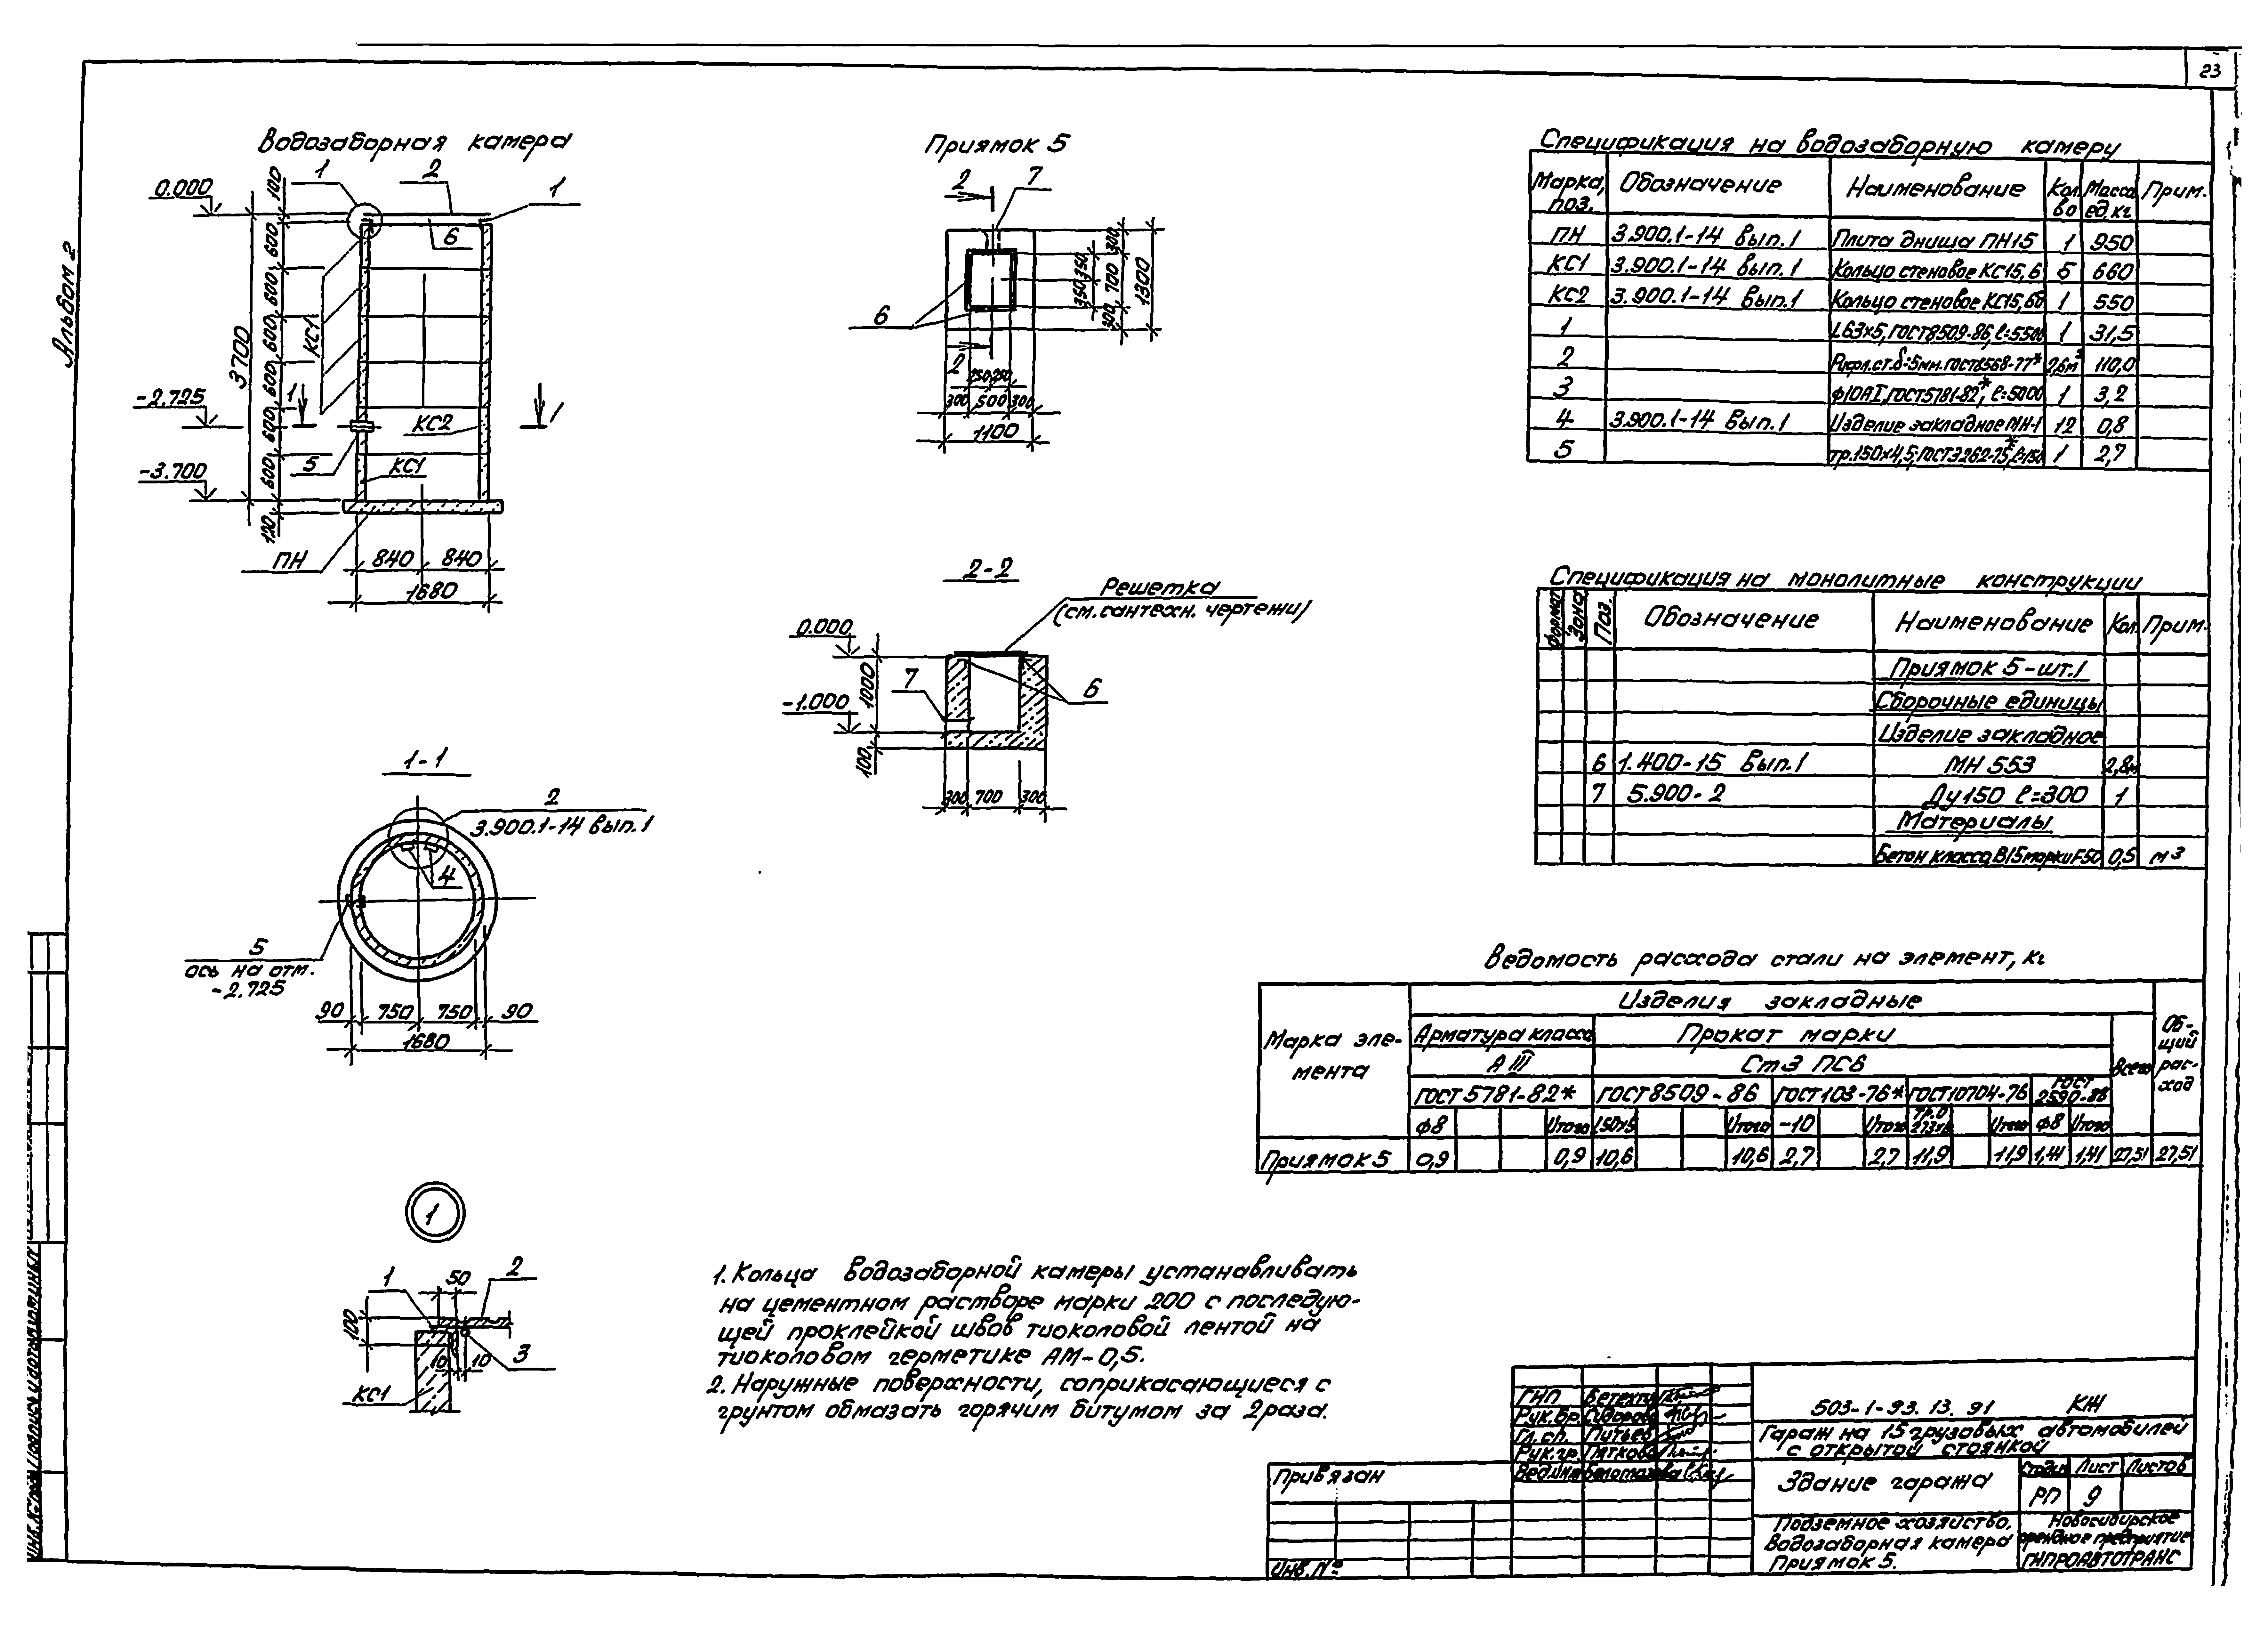 23
Альбом 2
Водозаборная камера
1
2
1
0.000
100
6
600
600
600
600
600
600
КС1
3700
-2.725
1
1
КС2
5
КС1
-3.700
120
ПН
840
840
1680
Приямок 5
2
7
6
300
350
350
700
300
1300
2
250
250
300
500
300
1100
2-2
Решетка
(см. сантехн. чертежи)
0.000
7
1000
6
-1.000
100
300
700
300
1-1
2
3.900.1-14 вып.1
4
5
ось на отм.
-2.725
90
750
750
90
1680
1
1
50
2
100
10
10
3
КС1
Спецификация на водозаборную камеру
Марка, поз. Обозначение Наименование Кол-во Масса ед. кг Прим.
ПН 3.900.1-14 вып.1 Плита днища ПН15 1 950
КС1 3.900.1-14 вып.1 Кольцо стеновое КС15,6 5 660
КС2 3.900.1-14 вып.1 Кольцо стеновое КС15,6б 1 550
1 L63х5, ГОСТ8509-86, ℓ=5500 1 31,5
2 Рифл.ст.δ=5мм. ГОСТ8568-77* 2,6м² 110,0
3 ф10АI, ГОСТ5781-82*, ℓ=5000 1 3,2
4 3.900.1-14 вып.1 Изделие закладное МН-1 12 0,8
5 тр.150х4,5, ГОСТ3262-75*, ℓ=150 1 2,7
Спецификация на монолитные конструкции
Формат Зона Поз. Обозначение Наименование Кол. Прим.
Приямок 5-шт.1
Сборочные единицы
Изделие закладное
6 1.400-15 вып.1 МН 553 2,8м
7 5.900-2 Ду150 ℓ=300 1
Материалы
Бетон класса В15 марки F50 0,5 м3
Ведомость расхода стали на элемент, кг
Марка элемента
Изделия закладные
Общий расход
Арматура класса
Прокат марки
Всего
А III
Ст3 ПС6
ГОСТ 5781-82* ГОСТ 8509-86 ГОСТ103-76* ГОСТ10704-76 ГОСТ 2590-88
ф8 Итого L50х5 Итого -10 Итого Итого ф8 Итого
Приямок 5 0,9 0,9 10,6 10,6 2,7 2,7 11,9 11,9 1,41 1,41 27,51 27,51
1. Кольца водозаборной камеры устанавливать
на цементном растворе марки 200 с последую-
щей проклейкой швов тиоколовой лентой на
тиоколовом герметике АМ-0,5.
2. Наружные поверхности, соприкасающиеся с
грунтом обмазать горячим битумом за 2 раза.
Привязан
Инв. №
ГИП
Рук.бр. Сидорова
Гл.сп.
Рук.гр. Пяткова
Вед.инж
503-1-93.13.91 КЖ
Гараж на 15 грузовых автомобилей
с открытой стоянкой
Здание гаража
Стадия Лист Листов
РП 9
Подземное хозяйство.
Водозаборная камера
Приямок 5.
Новосибирское
арендное предприятие
ГИПРОАВТОТРАНС